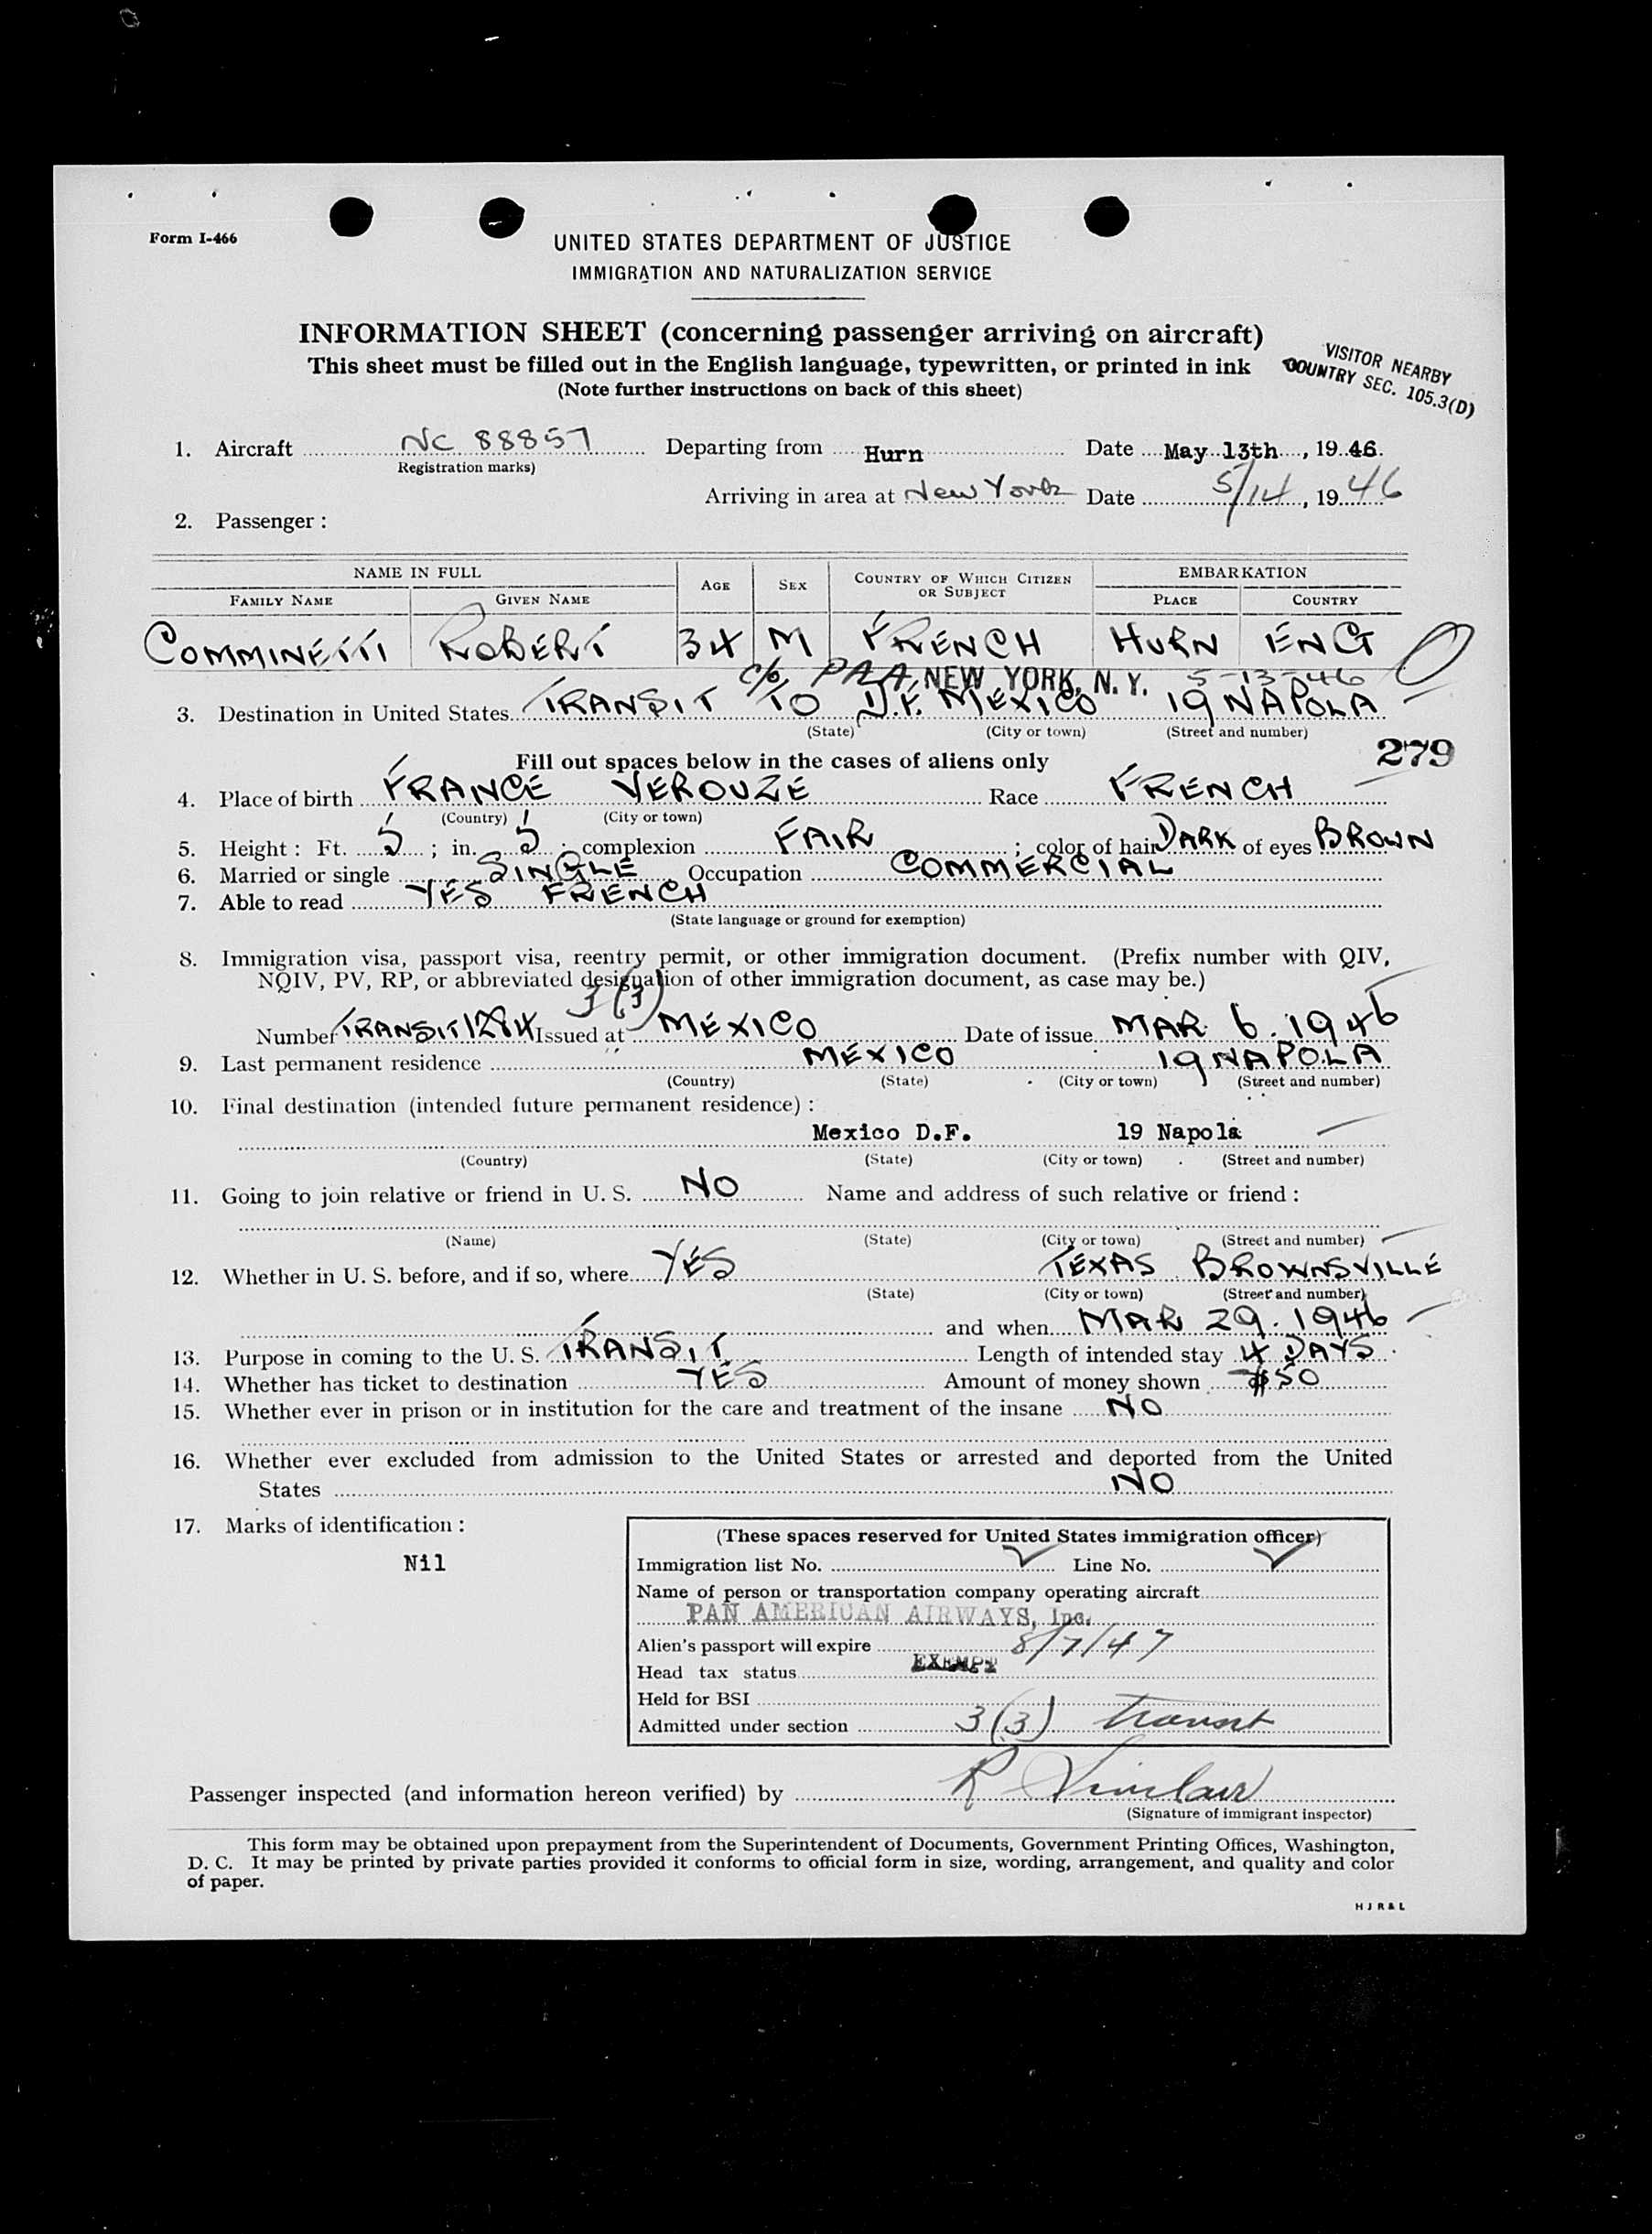 Form I-466
UNITED STATES DEPARTMENT OF JUSTICE
IMMIGRATION AND NATURALIZATION SERVICE
INFORMATION SHEET (concerning passenger arriving on aircraft)
This sheet must be filled out in the English language, typewritten, or printed in ink
(Note further instructions on back of this sheet)
VISITOR NEARBY
COUNTRY SEC. 105.3(D)
1. Aircraft NC 88857 Departing from Hurn Date May 13th, 1946.
Registration marks)
Arriving in area at New York Date 5/14, 1946
2. Passenger :
NAME IN FULL AGE SEX COUNTRY OF WHICH CITIZEN OR SUBJECT EMBARKATION
FAMILY NAME GIVEN NAME PLACE COUNTRY
COMMINETTI ROBERT 34 M FRENCH HURN ENG
c/o PAA, NEW YORK, N. Y. 5-13-46
3. Destination in United States TRANSIT TO D.F. MEXICO 19 NAPOLA
(State) (City or town) (Street and number)
Fill out spaces below in the cases of aliens only 279
4. Place of birth FRANCE VEROUZE Race FRENCH
(Country) (City or town)
5. Height : Ft. 5 ; in. 5 ; complexion FAIR ; color of hair DARK of eyes BROWN
6. Married or single SINGLE Occupation COMMERCIAL
7. Able to read YES FRENCH
(State language or ground for exemption)
8. Immigration visa, passport visa, reentry permit, or other immigration document. (Prefix number with QIV,
NQIV, PV, RP, or abbreviated designation of other immigration document, as case may be.)
3(3)
Number TRANSIT 1284 Issued at MEXICO Date of issue MAR 6. 1946
9. Last permanent residence MEXICO 19 NAPOLA
(Country) (State) (City or town) (Street and number)
10. Final destination (intended future permanent residence) :
Mexico D.F. 19 Napola
(Country) (State) (City or town) (Street and number)
11. Going to join relative or friend in U. S. NO Name and address of such relative or friend :
(Name) (State) (City or town) (Street and number)
12. Whether in U. S. before, and if so, where YES TEXAS BROWNSVILLE
(State) (City or town) (Street and number)
and when MAR 29. 1946
13. Purpose in coming to the U. S. TRANSIT Length of intended stay 4 DAYS
14. Whether has ticket to destination YES Amount of money shown $50
15. Whether ever in prison or in institution for the care and treatment of the insane NO
16. Whether ever excluded from admission to the United States or arrested and deported from the United
States NO
17. Marks of identification :
Nil
(These spaces reserved for United States immigration officer)
Immigration list No. Line No.
Name of person or transportation company operating aircraft
PAN AMERICAN AIRWAYS, Inc.
Alien's passport will expire 8/7/47
Head tax status EXEMPT
Held for BSI
Admitted under section 3(3) transit
Passenger inspected (and information hereon verified) by R Sinclair
(Signature of immigrant inspector)
This form may be obtained upon prepayment from the Superintendent of Documents, Government Printing Offices, Washington,
D. C. It may be printed by private parties provided it conforms to official form in size, wording, arrangement, and quality and color
of paper.
H J R & L